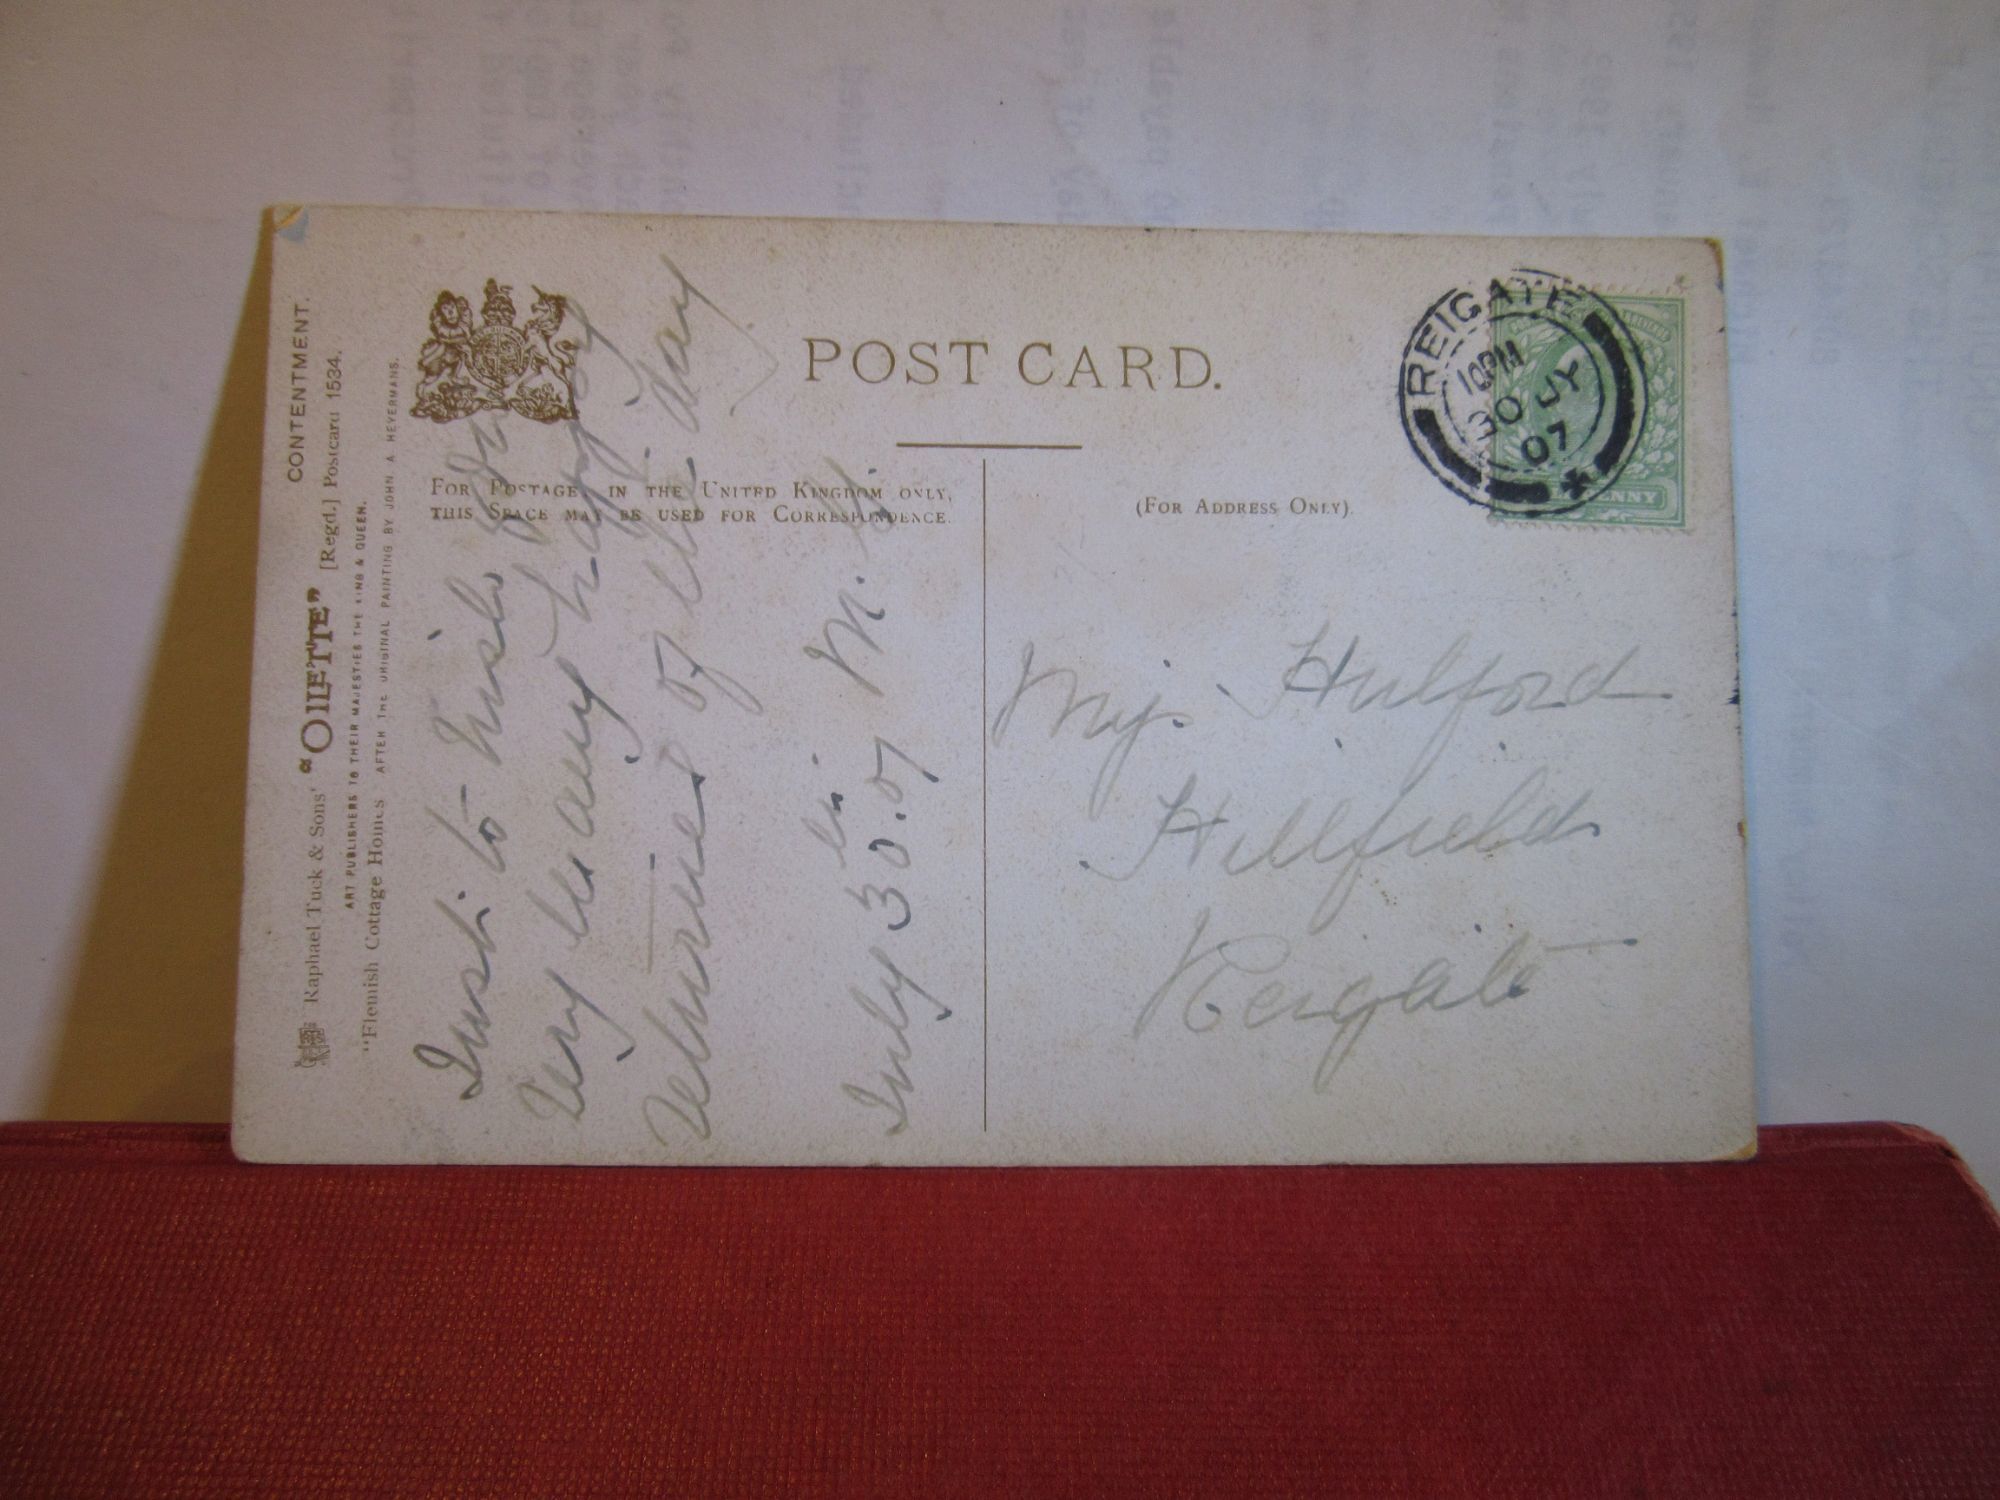 CONTENTMENT.
Raphael Tuck & Sons' "OILETTE" [Regd.] Postcard 1534.
ART PUBLISHERS TO THEIR MAJESTIES THE KING & QUEEN.
"Flemish Cottage Homes AFTER THE ORIGINAL PAINTING BY JOHN A HEYERMANS.
POST CARD.
FOR POSTAGE IN THE UNITED KINGDOM ONLY,
THIS SPACE MAY BE USED FOR CORRESPONDENCE.
(FOR ADDRESS ONLY).
REIGATE
10 PM
30 JY
07
PENNY
Just to wish you
Very many happy
Returns of the day
M.
July 30.07
Miss Hulford
Hillfield
Reigate
included
payable